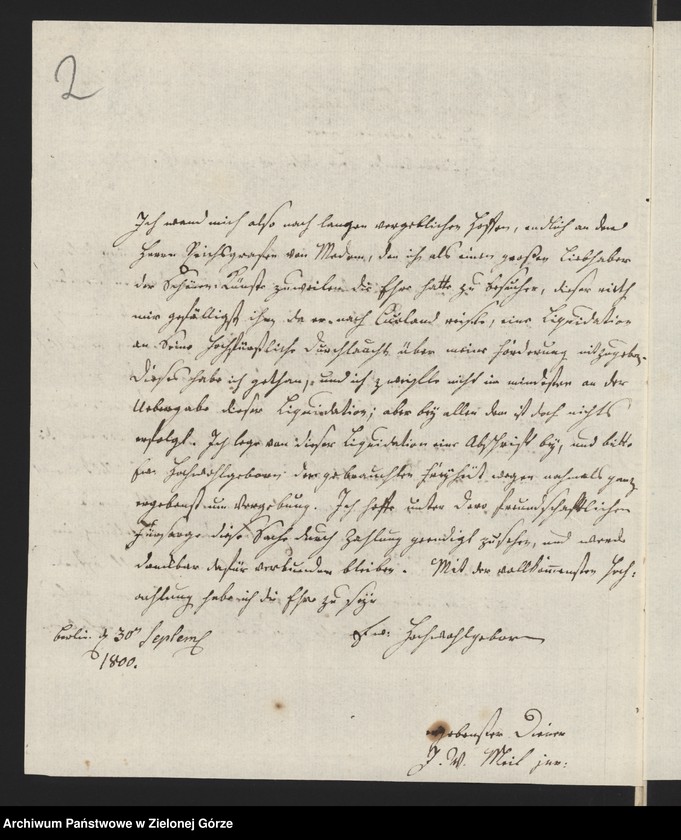 2
Ich wand mich also nach langen vergeblichen Hoffen, endlich an den
Herrn Reichsgrafen von Medem, den ich als einen großen Liebhaber
der Schönen Künste zuweilen die Ehre hatte zu besuchen, dieser rieth
mir gefälligst ihm, da er nach Curland reiste, eine Liquidation
an Seine Hochfürstliche Durchlaucht über meine Förderung mitzugeben.
Dieses habe ich gethan, und ich zweifle nicht im mindesten an der
Uebergabe dieser Liquidation; aber bey allen dem ist doch nichts
erfolgt. Ich lege von dieser Liquidation eine Abschrift bey, und bitte
Ew: Hochwohlgeborn der gebrauchten Freyheit wegen nochmals ganz
ergebenst um Vergebung. Ich hoffe unter Dero freundschaftlichen
Fürsorge diese Sache durch Zahlung geendigt zu sehen, und werde
dankbar dafür verbunden bleiben. Mit der vollkommensten Hoch-
achtung habe ich die Ehre zu seyn
Berlin d 30t Septemb
1800.
Ew: Hochwohlgeborn
ergebenster Diener
J. W. Meil jun:
Archiwum Państwowe w Zielonej Górze